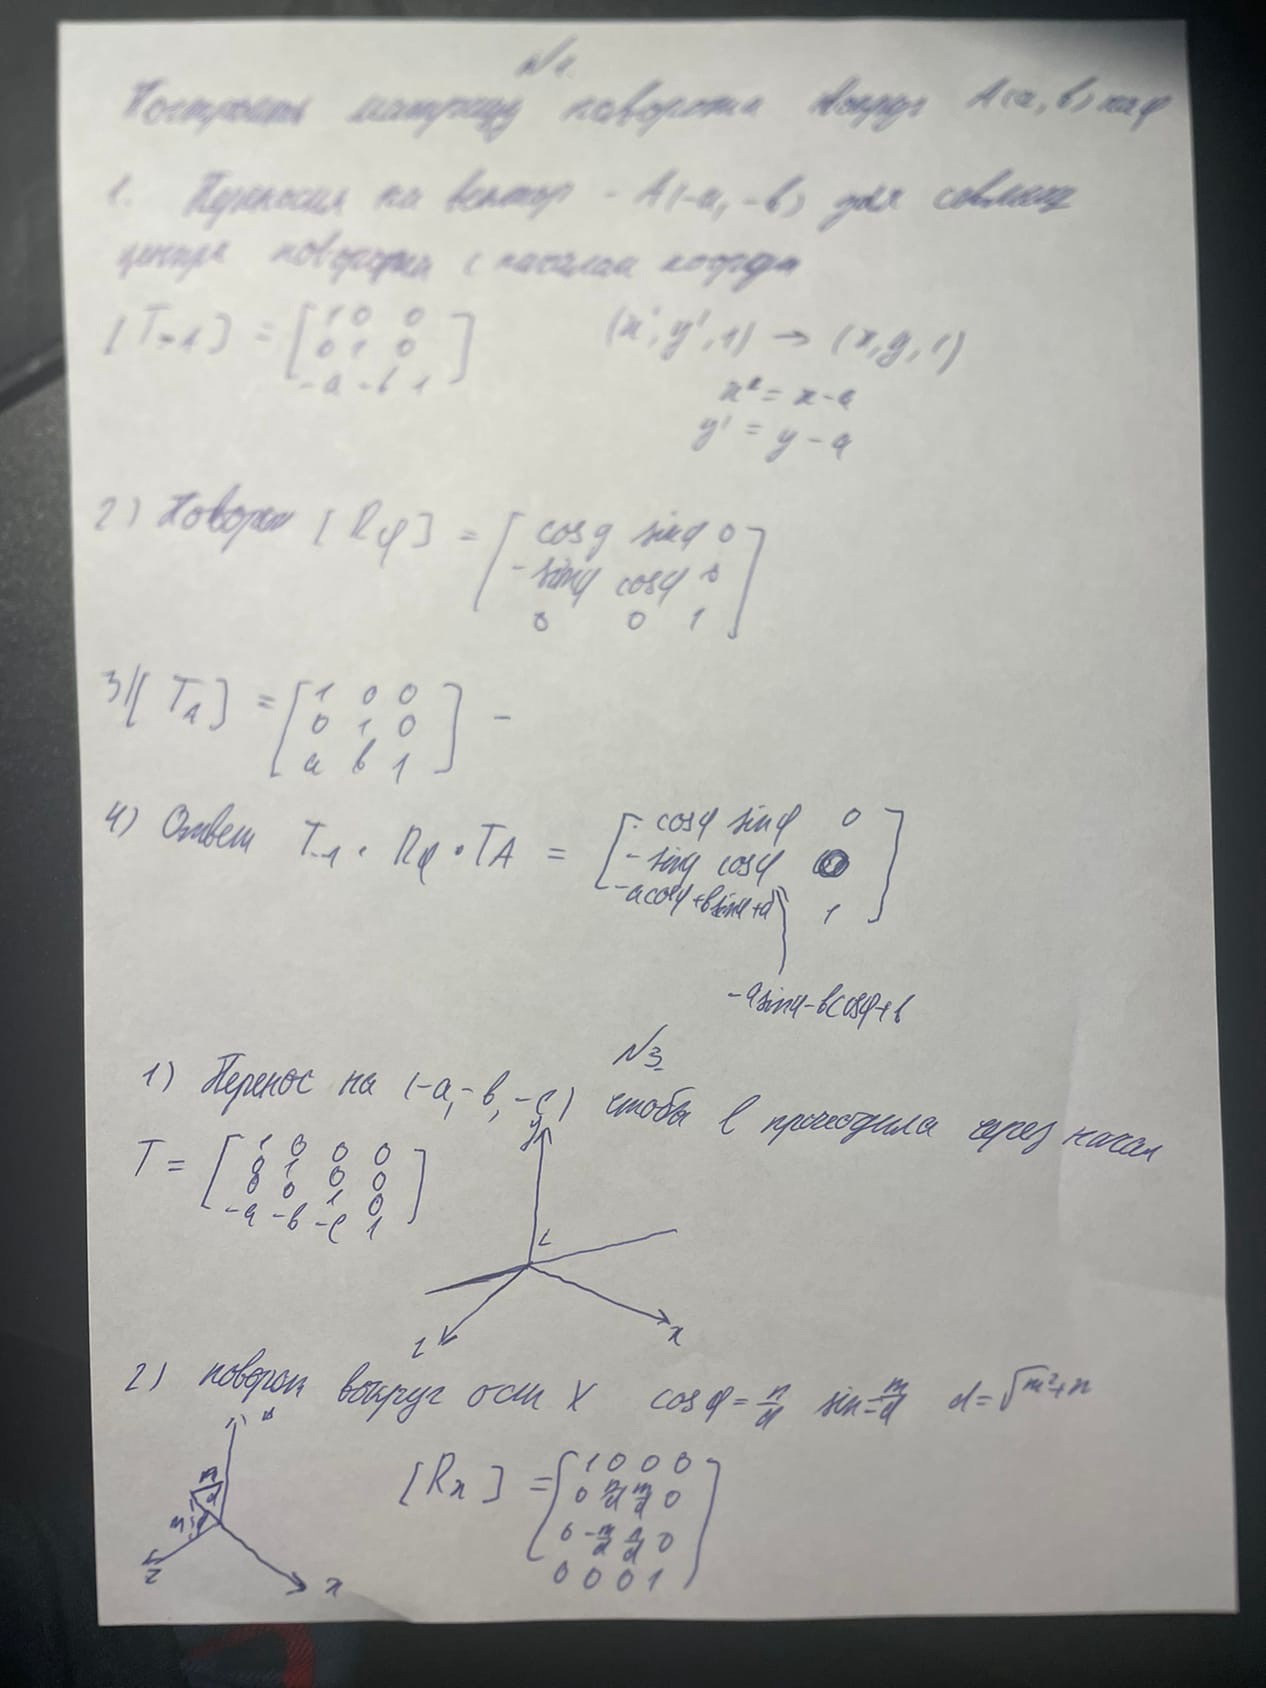 №1.
Построить матрицу поворота вокруг A(a, b) на φ
1. Переносим на вектор -A(-a, -b) для совмещ
центра поворота с началом коорд
[T-A] = [1 0 0
0 1 0
-a -b 1]
(x', y', 1) → (x, y, 1)
x' = x-a
y' = y-a
2) Поворот [Rφ] = [cosφ sinφ 0
-sinφ cosφ 0
0 0 1]
3) [TA] = [1 0 0
0 1 0
a b 1] -
4) Ответ T-A · Rφ · TA = [cosφ sinφ 0
-sinφ cosφ 0
-acosφ+bsinφ+a 1]
-asinφ-bcosφ+b
№3.
1) Перенос на (-a, -b, -c) чтобы l проходила через начал
T = [1 0 0 0
0 1 0 0
0 0 1 0
-a -b -c 1]
y
L
z
x
2) поворот вокруг оси X cosφ = n/d sin = m/d d = √m²+n
[Rx] = [1 0 0 0
0 n/d m/d 0
0 -m/d n/d 0
0 0 0 1]
n
d
m
z
x